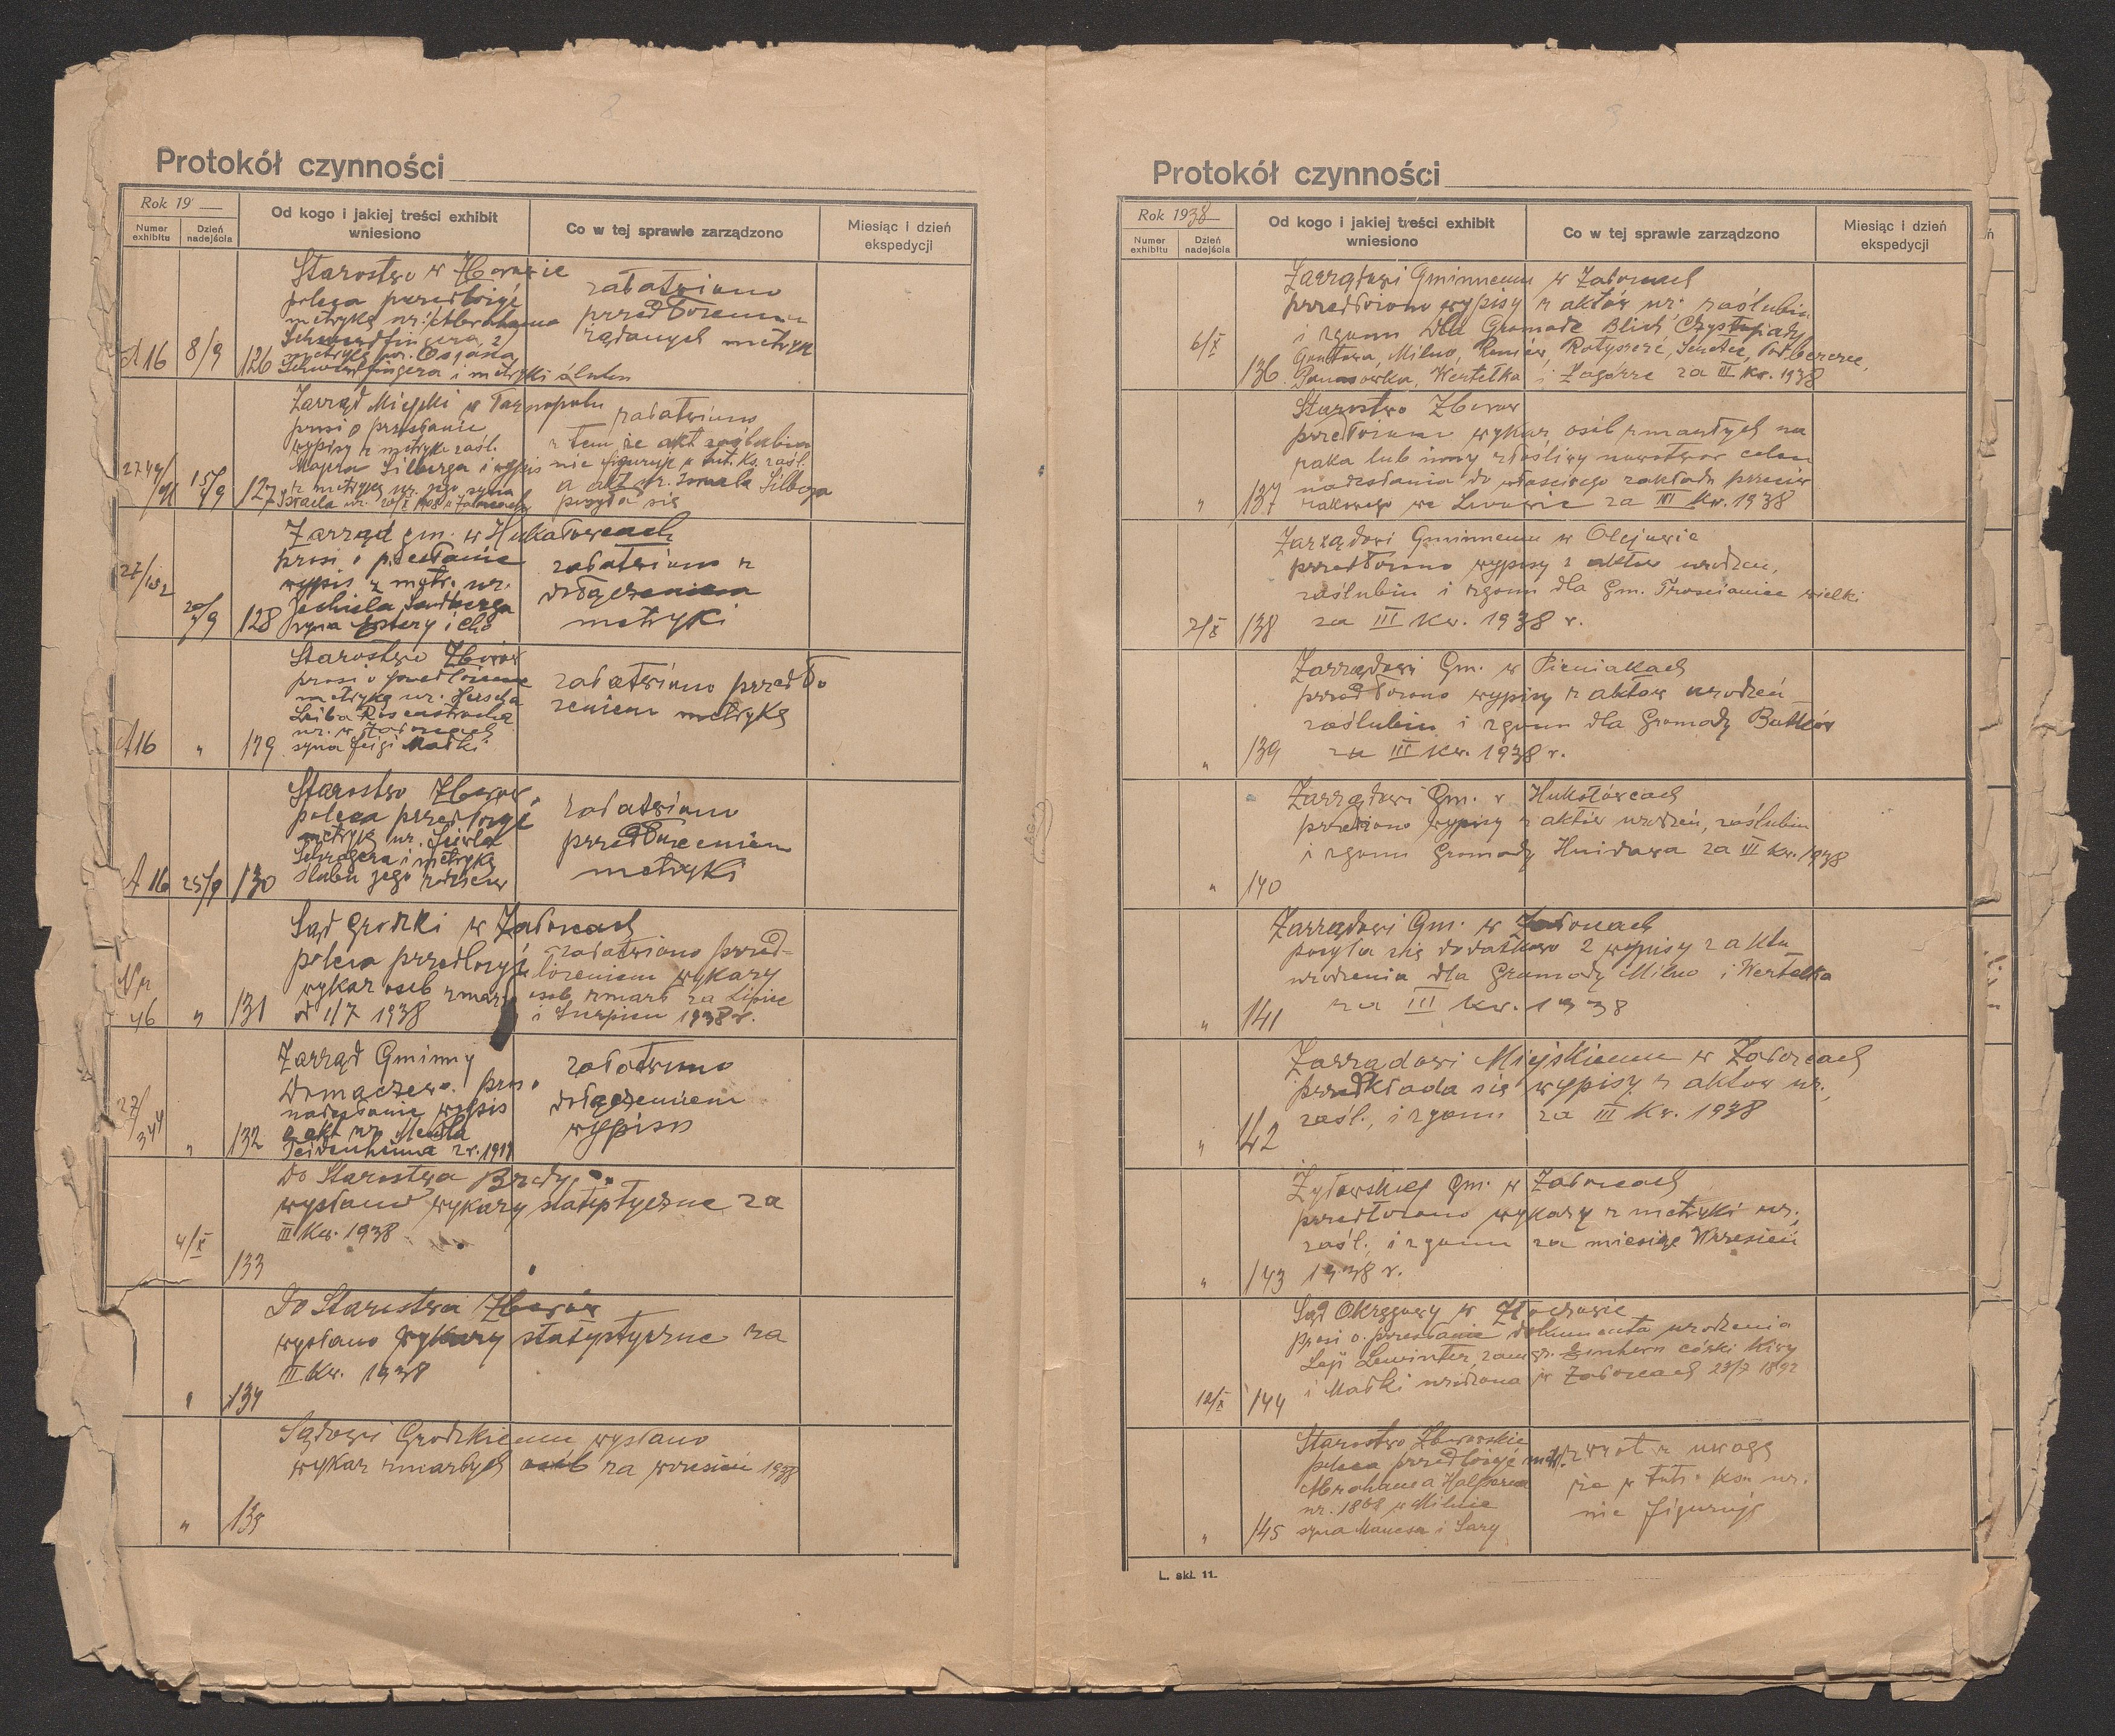 Protokół czynności
Rok 19
Numer exhibitu
Dzień nadejścia
Od kogo i jakiej treści exhibit wniesiono
Co w tej sprawie zarządzono
Miesiąc i dzień ekspedycji
A 16
8/9
126
Starostwo w Zborowie
poleca przedłożyć
metrykę ur. Abrahama
Schwadfingera, 2)
metrykę ur. Osjasa
Schwadfingera i metryki ślubu
załatwiono
przedłożeniem
żądanych metryk
15/9
127
Zarząd Miejski w Tarnopolu
prosi o przesłanie
wypisy z metryk zaśl.
Majera Silberga i wypis
z metryki ur. jego syna
Izraela
załatwiono
z tem że akt zaślubin
nie figuruje w tut. Ks. zaśl.
a akt ur. Izraela Silberga
posyła się
128
Zarząd gm. w Hukałowcach
prosi o przesłanie
wypis z metr. ur.
Jechiela Sandberga
syna
załatwiono z
dołączeniem
metryki
A 16
"
129
Starostwo Zborów
prosi o przedłożenie
metrykę ur. Herscha
Leiba Rosenstrocha
ur. w Załoźcach
syna Feigi Matki
załatwiono przedło
żeniem metryką
A 16
25/9
130
Starostwo Zborów
poleca przedłożyć
metrykę ur.
i metrykę
ślubu jego rodziców
załatwiono
przedłożeniem
metryki
Nr 46
"
131
Sąd Grodzki w Załoźcach
poleca przedłożyć
wykaz osób zmarł
od 1/7 1938
załatwiono przed-
łożeniem wykazy
osob zmarł za Lipiec
i Sierpień 1938 r.
27/344
"
132
Zarząd Gminny
Domaczewo prosi
nadesłanie wypis
z akt ur. Mendla
załatwiono
dołączeniem
wypisu
4/X
133
Do Starostwa Brody
wysłano wykazy statystyczne za
III Kw. 1938
"
134
Do Starostwa Zborów
wysłano wykazy statystyczne za
II Kw. 1938
"
135
Sądowi Grodzkiemu wysłano
wykaz zmarłych osób za wrzesień 1938
Protokół czynności
Rok 1938
Numer exhibitu
Dzień nadejścia
Od kogo i jakiej treści exhibit wniesiono
Co w tej sprawie zarządzono
Miesiąc i dzień ekspedycji
6/X
136
Zarządowi Gminnemu w Załoźcach
przedłożono wypisy z aktów ur., zaślubin
i zgonu dla Gromade Blich, Czystopady,
Gontowa, Milno, Reniów, Ratyszcze, Seretec, Podbereźce,
Panasówka, Wertełka i Zagórze za III Kw. 1938
"
137
Starostwo Zborow
przedłożono wykaz osób zmarłych na
raka lub inny złośliwy nowotwor celem
nadesłania do właściwego zakładu przeciw
rakowego we Lwowie za III Kw. 1938
138
Zarządowi Gminnemu w Olejowie
przedłożono wypisy z aktów urodzeń,
zaślubin i zgonu dla Gm. Trościaniec wielki
za III Kw. 1938 r.
"
139
Zarządowi Gm. w Pieniakach
przedłożono wypisy z aktów urodzeń
zaślubin i zgonu dla Gromady Batków
za III Kw. 1938 r.
"
140
Zarządowi Gm. w Hukałówcach
przesłano wypisy z aktów urodzeń, zaślubin
i zgonu Gromady Hnidawa za III Kw. 1938
"
141
Zarządowi Gm. w Załoźcach
posyła się dodatkowo 2 wypisy z aktu
urodzenia dla Gromady Milno i Wertełka
za III Kw. 1938
"
142
Zarządowi Miejskiemu w Załoźcach
przedkłada się wypisy z aktow ur.,
zaśl., i zgonu za III Kw. 1938
"
143
Żydowskiej Gm. w Załoźcach
przedłożono wykazy z metryki ur.,
zaśl., i zgonu za miesiąc Wrzesień
1938 r.
12/X
144
Sąd Okręgowy w Złoczowie
prosi o przesłanie dokumenta urodzenia
Leji Lewinter, córki Kiwy
i Matki urodzona w Załoźcach 23/7 1892
"
145
Starostwo Zborowskie
poleca przedłożyć metr.
Abrahama Halperna
ur. 1868 w Milnie
syna Manesa i Sary
zwrot z uwagą
że w tut. ksn ur.
nie figuruje
L. skł. 11.